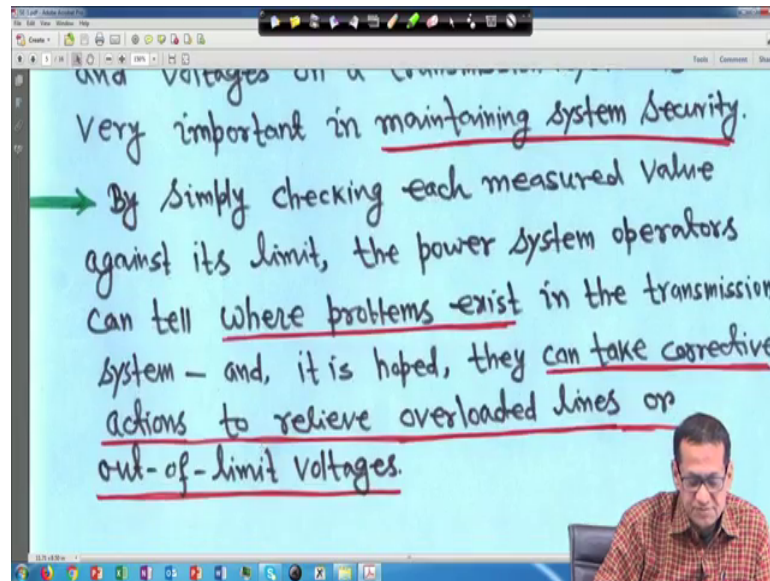 SE 1.pdf - Adobe Acrobat Pro
File Edit View Window Help
Create
Tools Comment Share
and voltages on a transmission system is
very important in maintaining system security.
By simply checking each measured value
against its limit, the power system operators
can tell where problems exist in the transmission
system – and, it is hoped, they can take corrective
actions to relieve overloaded lines or
out-of-limit voltages.